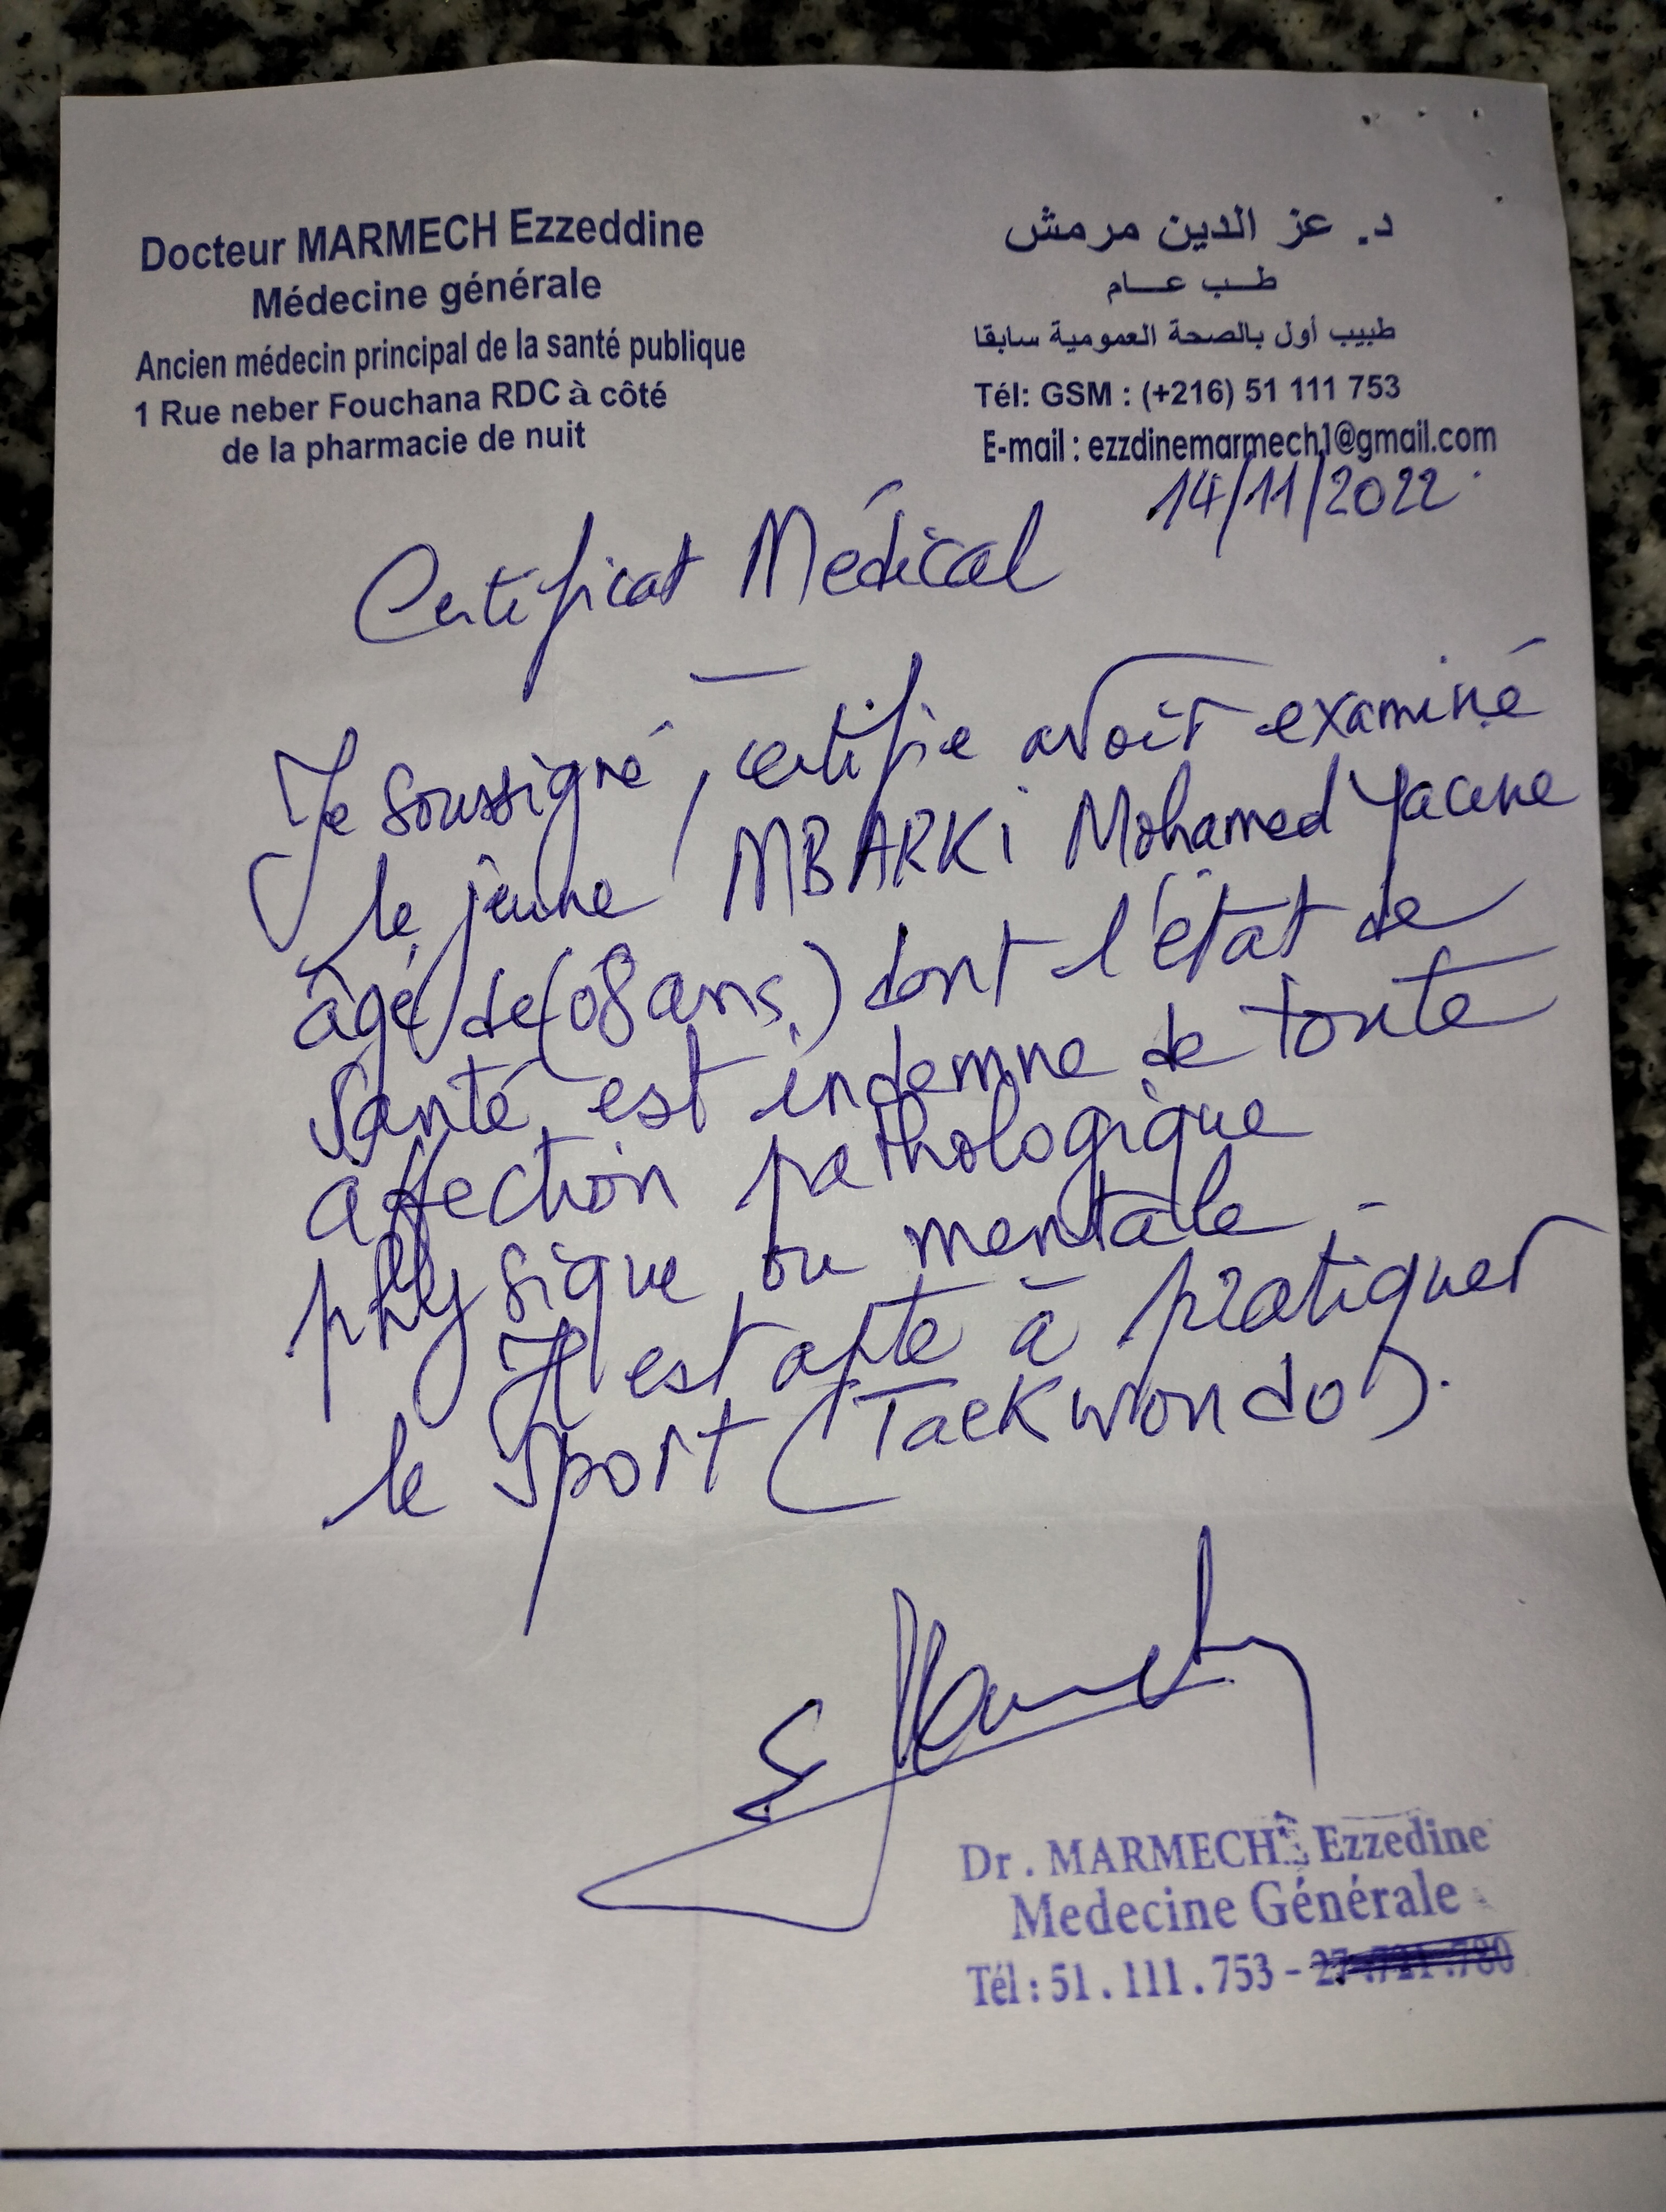 Docteur MARMECH Ezzeddine
Médecine générale
Ancien médecin principal de la santé publique
1 Rue neber Fouchana RDC à côté
de la pharmacie de nuit
د. عز الدين مرمش
طب عام
طبيب أول بالصحة العمومية سابقا
Tél: GSM : (+216) 51 111 753
E-mail : ezzdinemarmech1@gmail.com
14/11/2022
Certificat Médical
Je soussigné, certifie avoir examiné
le jeune MBARKi Mohamed Yacine
âgé de (08 ans) dont l'état de
santé est indemne de toute
affection pathologique
physique ou mentale.
Il est apte à pratiquer
le sport (Taekwondo).
Dr. MARMECH Ezzedine
Medecine Générale
Tél : 51 . 111 . 753 -